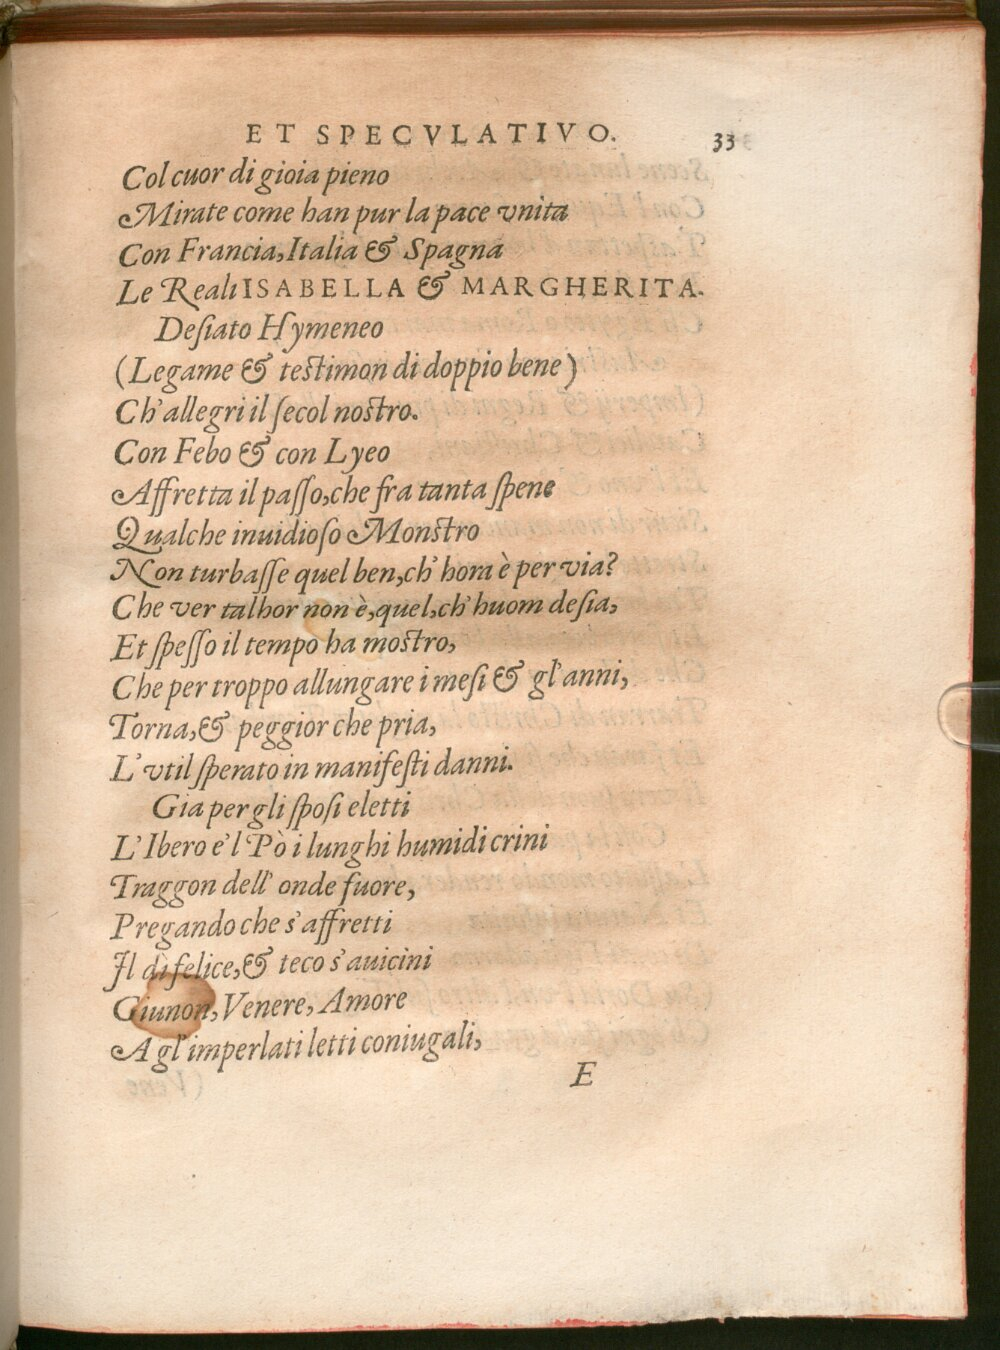 ET SPECVLATIVO. 33
Col cuor di gioia pieno
Mirate come han pur la pace vnita
Con Francia, Italia & Spagna
Le Reali ISABELLA & MARGHERITA.
Desiato Hymeneo
(Legame & testimon di doppio bene)
Ch'allegri il secol nostro.
Con Febo & con Lyeo
Affretta il passo, che fra tanta spene
Qualche inuidioso Monstro
Non turbasse quel ben, ch'hora è per via?
Che ver talhor non è, quel, ch'huom desia,
Et spesso il tempo ha mostro,
Che per troppo allungare i mesi & gl'anni,
Torna, & peggior che pria,
L'vtil sperato in manifesti danni.
Gia per gli sposi eletti
L'Ibero e'l Pò i lunghi humidi crini
Traggon dell'onde fuore,
Pregando che s'affretti
Il dì felice, & teco s'auicini
Giunon, Venere, Amore
A gl'imperlati letti coniugali,
E